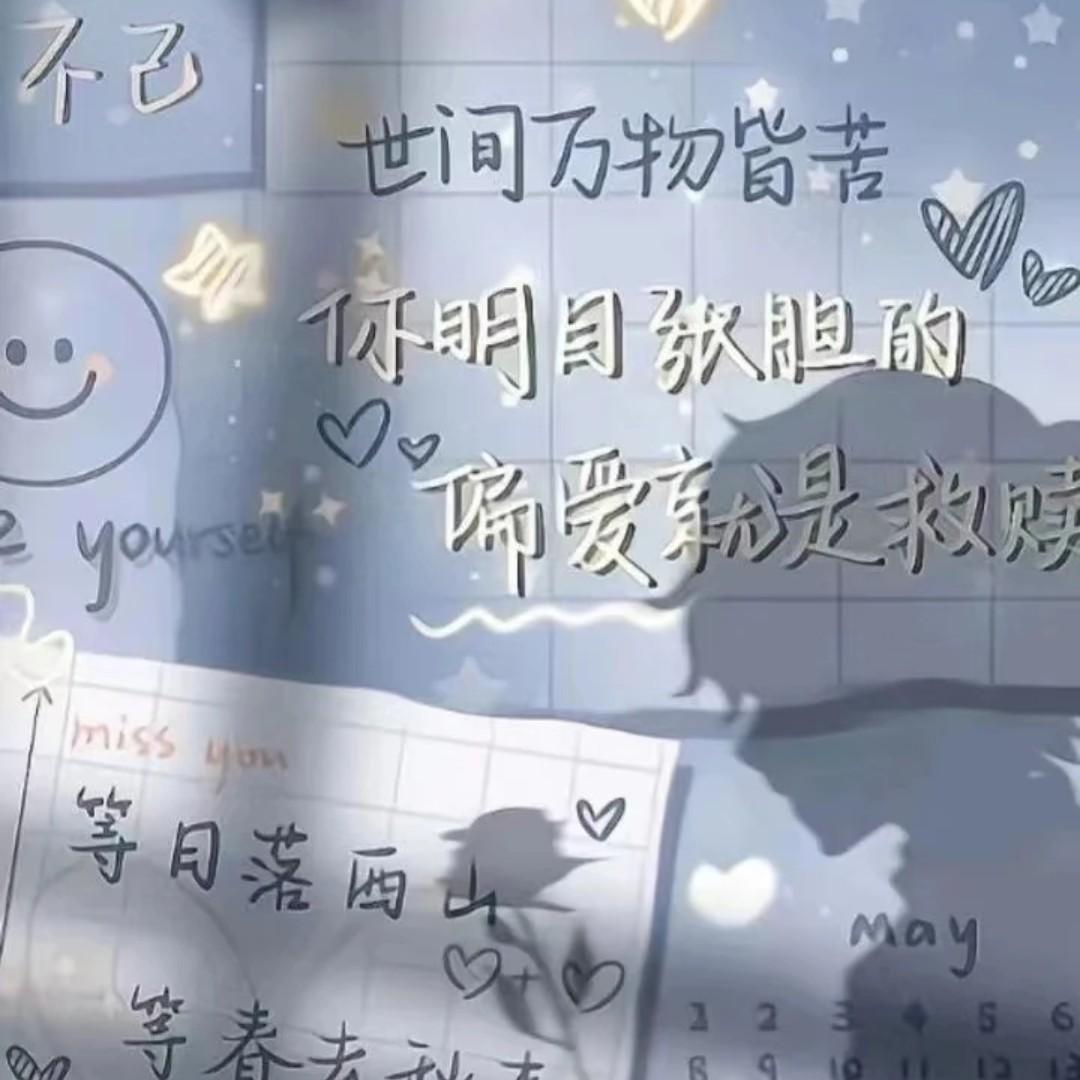 不己
世间万物皆苦
你明目张胆的
偏爱就是救赎
yourself
miss you
等日落西山
等春去秋
May
1 2 3 4 5 6
8 9 10 11 12 13